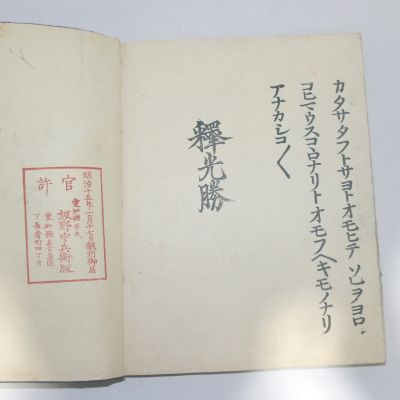 カタサタフトサヨトオモヒテソレヲヨロ
コヒマウスコヽロナリトオモフヘキモノナリ
アナカシコ〱
釋光勝
明治十五年二月十七日飜刻御届
官許
愛知縣平民
坂野宇兵衛版
愛知縣名古屋區
下長者町四丁目